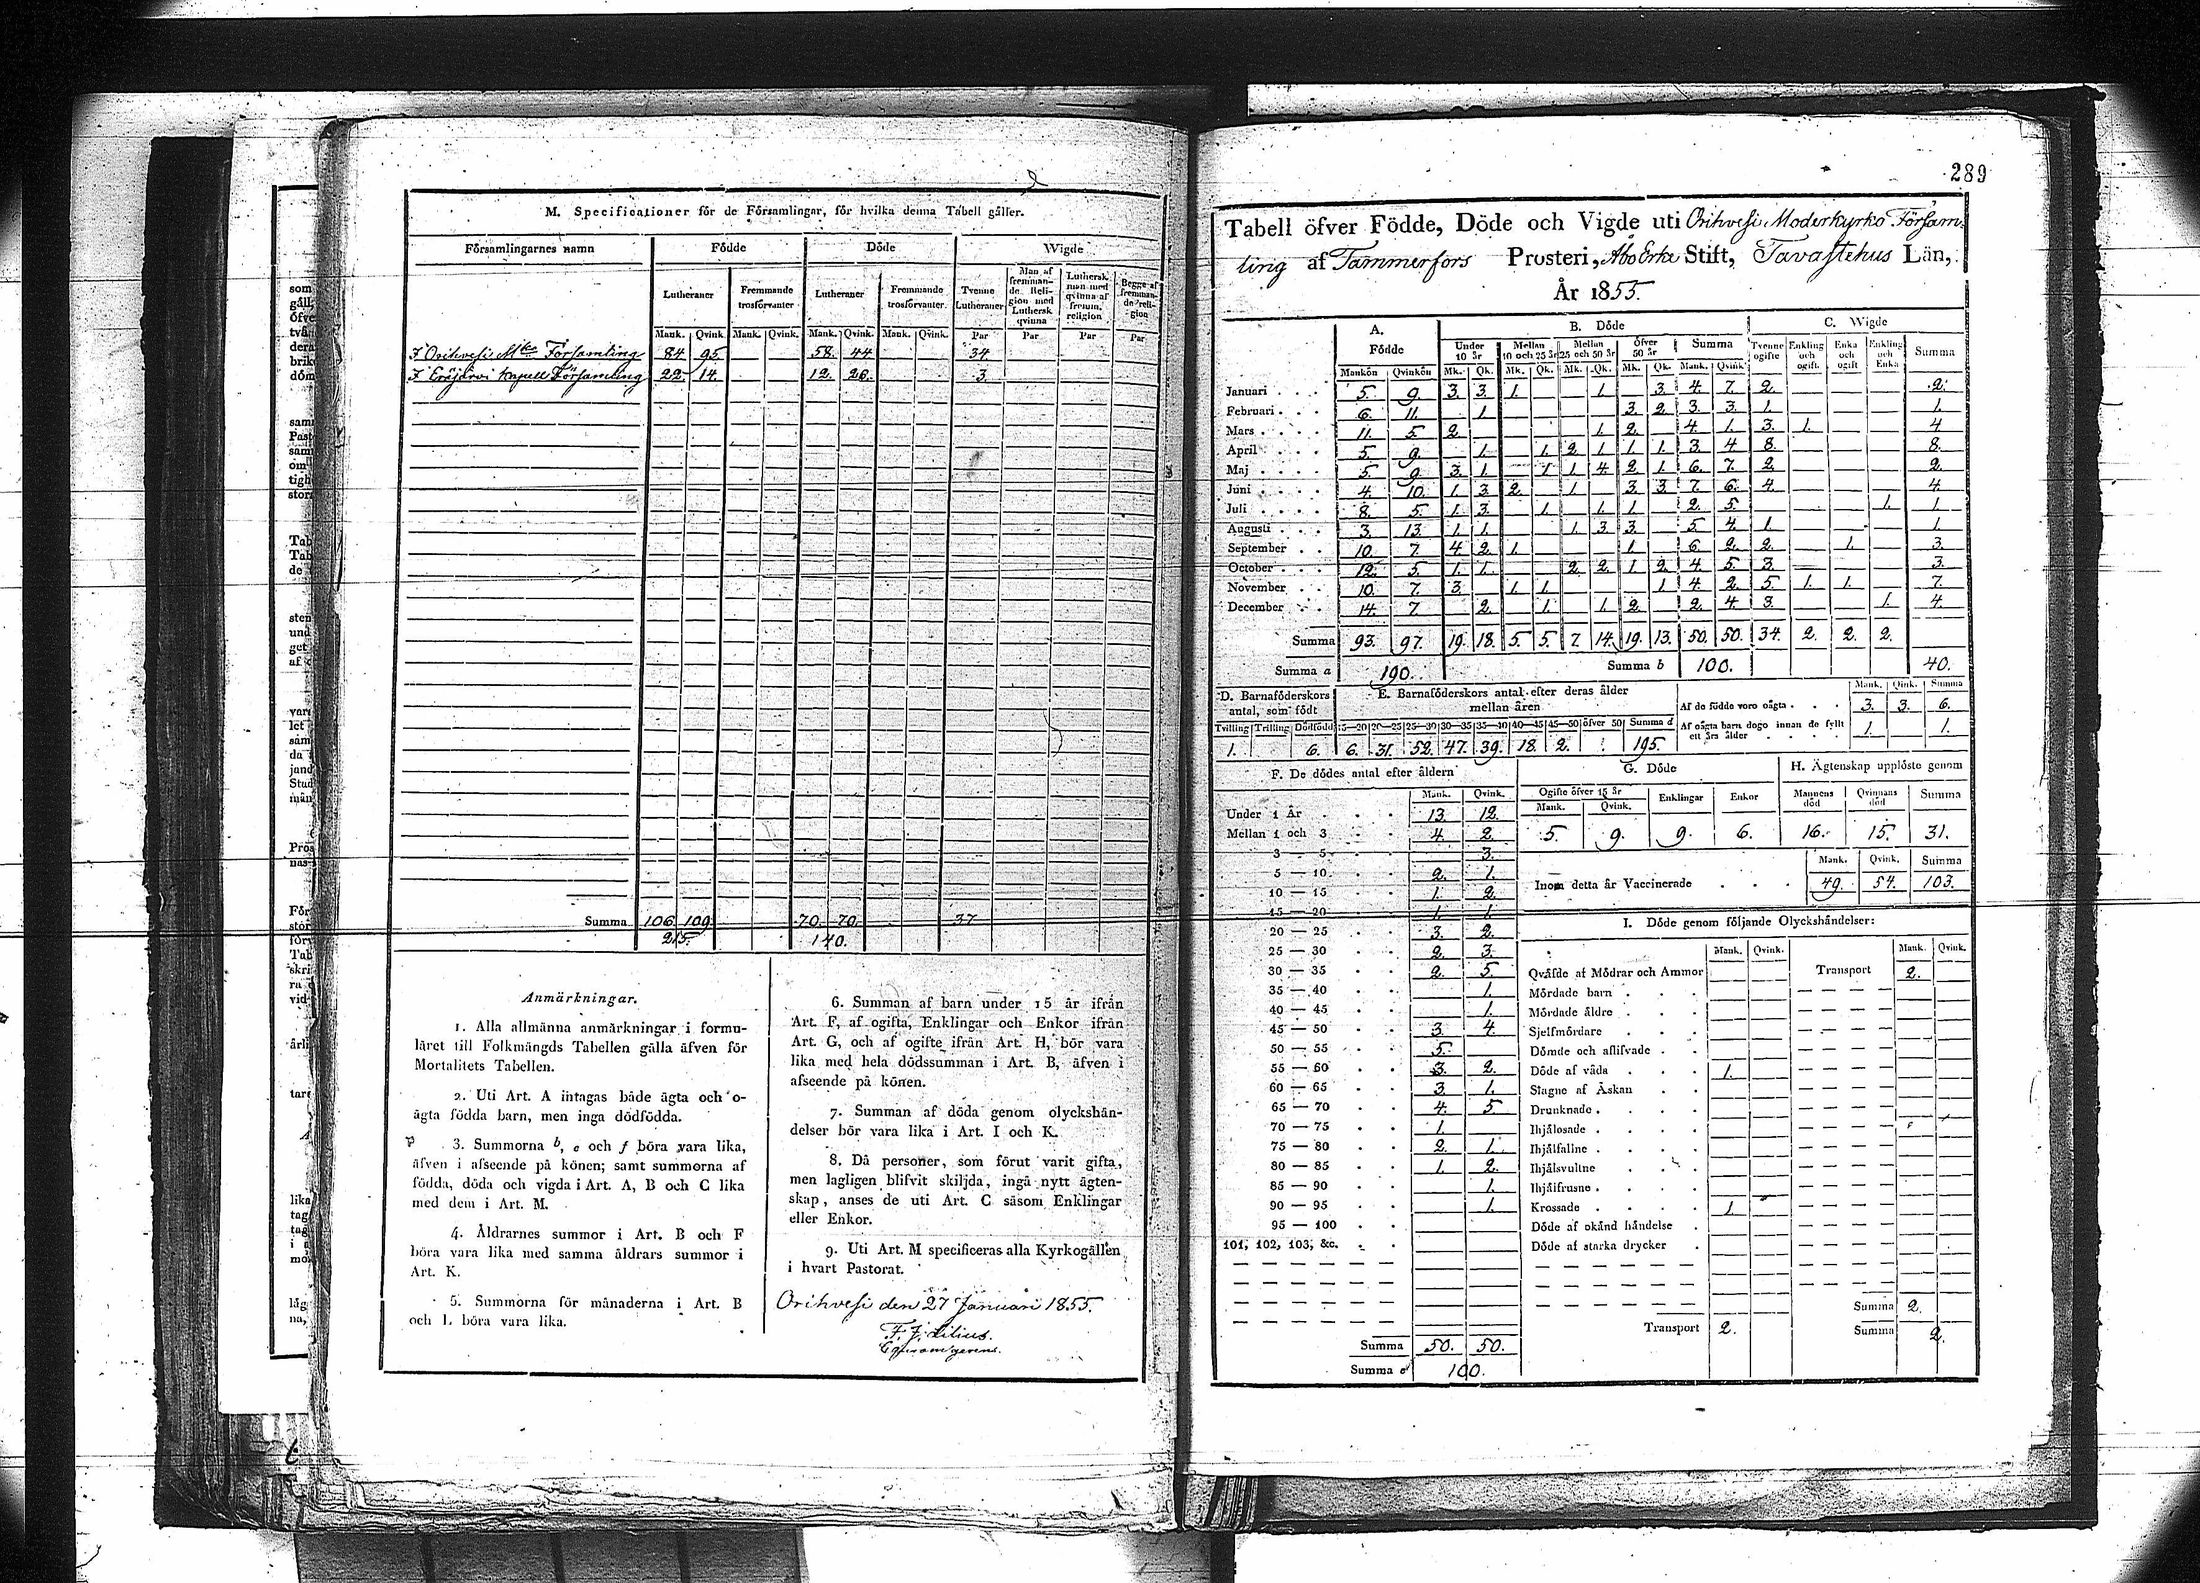 M. Specificationer för de Församlingar, för hvilka denna Tabell gäller.
Församlingarnes namn Födde Döde Wigde
Lutheraner Fremmande trosförvanter Lutheraner Fremmande trosförvanter Tvenne Lutheraner Man af fremmande Religion med Luthersk qvinna Luthersk man med qvinna af fremm. religion Begge af fremmande religion
Mank. Qvink. Mank. Qvink. Mank. Qvink. Mank. Qvink. Par Par Par Par
I Orihvesi Mko Församling 84 95. 58. 44 34
I Eräjärvi Kapell Församling 22. 14. 12. 26. 3.
Summa 106. 109. 70. 70. 37
215. 140.
Anmärkningar.
1. Alla allmänna anmärkningar i formu-
läret till Folkmängds Tabellen gälla äfven för
Mortalitets Tabellen.
2. Uti Art. A intagas både ägta och o-
ägta födda barn, men inga dödfödda.
3. Summorna b, e och f böra vara lika,
äfven i afseende på könen; samt summorna af
födda, döda och vigda i Art. A, B och C lika
med dem i Art. M.
4. Åldrarnes summor i Art. B och F
böra vara lika med samma åldrars summor i
Art. K.
5. Summorna för månaderna i Art. B
och L böra vara lika.
6. Summan af barn under 15 år ifrån
Art. F, af ogifta, Enklingar och Enkor ifrån
Art. G, och af ogifte ifrån Art. H, bör vara
lika med hela dödssumman i Art. B, äfven i
afseende på könen.
7. Summan af döda genom olyckshän-
delser bör vara lika i Art. I och K.
8. Då personer, som förut varit gifta,
men lagligen blifvit skiljda, ingå nytt ägten-
skap, anses de uti Art. C såsom Enklingar
eller Enkor.
9. Uti Art. M specificeras alla Kyrkogällen
i hvart Pastorat.
Orihvesi den 27 Januari 1855.
F. J. Lilius.
289
Tabell öfver Födde, Döde och Vigde uti Orihvesi Moderkyrko Församling
ling af Tammerfors Prosteri, Åbo Erke Stift, Tavastehus Län,
År 1855.
A. Födde B. Döde C. Wigde
Under 10 år Mellan 10 och 25 år Mellan 25 och 50 år Öfver 50 år Summa Tvenne ogifte Enkling och ogift. Enka och ogift Enkling och Enka Summa
Mankön Qvinkön Mk. Qk. Mk. Qk. Mk. Qk. Mk. Qk. Mank. Qvink.
Januari 5. 9. 3. 3. 1. 1. 3. 4. 7. 2. 2.
Februari 6. 11. 1. 3. 2. 3. 3. 1. 1.
Mars 11. 5. 2. 1. 2. 4. 1. 3. 1. 4
April 5. 9. 1. 1. 2. 1. 1. 1. 3. 4 8. 8.
Maj 5. 9. 3. 1. 1 1 4. 2. 1. 6. 7. 2. 2.
Juni 4. 10. 1. 3. 2. 1. 3. 3. 7. 6. 4. 4
Juli 8. 5. 1. 3. 1. 1. 1. 2. 5. 1. 1
Augusti 3. 13. 1. 1. 1. 3. 3. 5 4. 1. 1
September 10. 7. 4. 2. 1. 1. 6. 2. 2. 1. 3.
October 12. 5. 1. 1. 2. 2. 1. 2. 4. 5. 3. 3.
November 10. 7. 3. 1. 1. 1. 4. 2. 5. 1. 1. 7.
December 14. 7. 2. 1. 1. 2. 2. 4. 3. 1. 4.
Summa 93. 97. 19. 18. 5. 5. 7. 14. 19. 13. 50. 50. 34. 2. 2. 2.
Summa a 190. Summa b 100. 40.
D. Barnaföderskors antal, som födt
Tvilling Trilling Dödfödd
1. 6.
E. Barnaföderskors antal efter deras ålder
mellan åren
15—20 20—25 25—30 30—35 35—40 40—45 45—50 öfver 50 Summa d
6. 31. 52. 47. 39. 18. 2. 195.
Mank. Qink. Summa
Af de födde voro oägta 3. 3. 6.
Af oägta barn dogo innan de fyllt
ett års ålder 1. 1.
F. De dödes antal efter åldern
Mank. Qvink.
Under 1 År 13. 12.
Mellan 1 och 3 4. 2.
3 — 5 3.
5 — 10 2. 1.
10 — 15 1. 2.
15 — 20 1. 1.
20 — 25 3. 2.
25 — 30 2. 3.
30 — 35 2. 5.
35 — 40 1.
40 — 45 1.
45 — 50 3. 4.
50 — 55 5.
55 — 60 3. 2.
60 — 65 3. 1.
65 — 70 4. 5
70 — 75 1.
75 — 80 2. 1.
80 — 85 1. 2.
85 — 90 1.
90 — 95 1.
95 — 100
101, 102, 103, &c.
Summa 50. 50.
Summa e 100.
G. Döde
Ogifte öfver 15 år Enklingar Enkor
Mank. Qvink.
5. 9. 9. 6.
H. Ägtenskap upplöste genom
Mannens död Qvinnans död Summa
16. 15. 31.
Mank. Qvink. Summa
Inom detta år Vaccinerade 49. 54. 103.
I. Döde genom följande Olyckshändelser:
Mank. Qvink. Mank. Qvink.
Qväfde af Mödrar och Ammor Transport 2.
Mördade barn
Mördade äldre
Sjelfmördare
Dömde och aflifvade
Döde af våda 1.
Slagne af Åskan
Drunknade
Ihjälosade
Ihjälfallne
Ihjälsvultne
Ihjälfrusne
Krossade 1.
Döde af okänd händelse
Döde af starka drycker
Summa 2.
Transport 2. Summa 2.